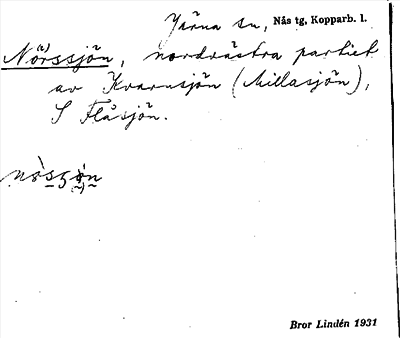 Järna sn, Nås tg, Kopparb. l.
Nörssjön, nordvästra partiet
av Kvarnsjön (Millasjön),
S Flåsjön.
Bror Lindén 1931